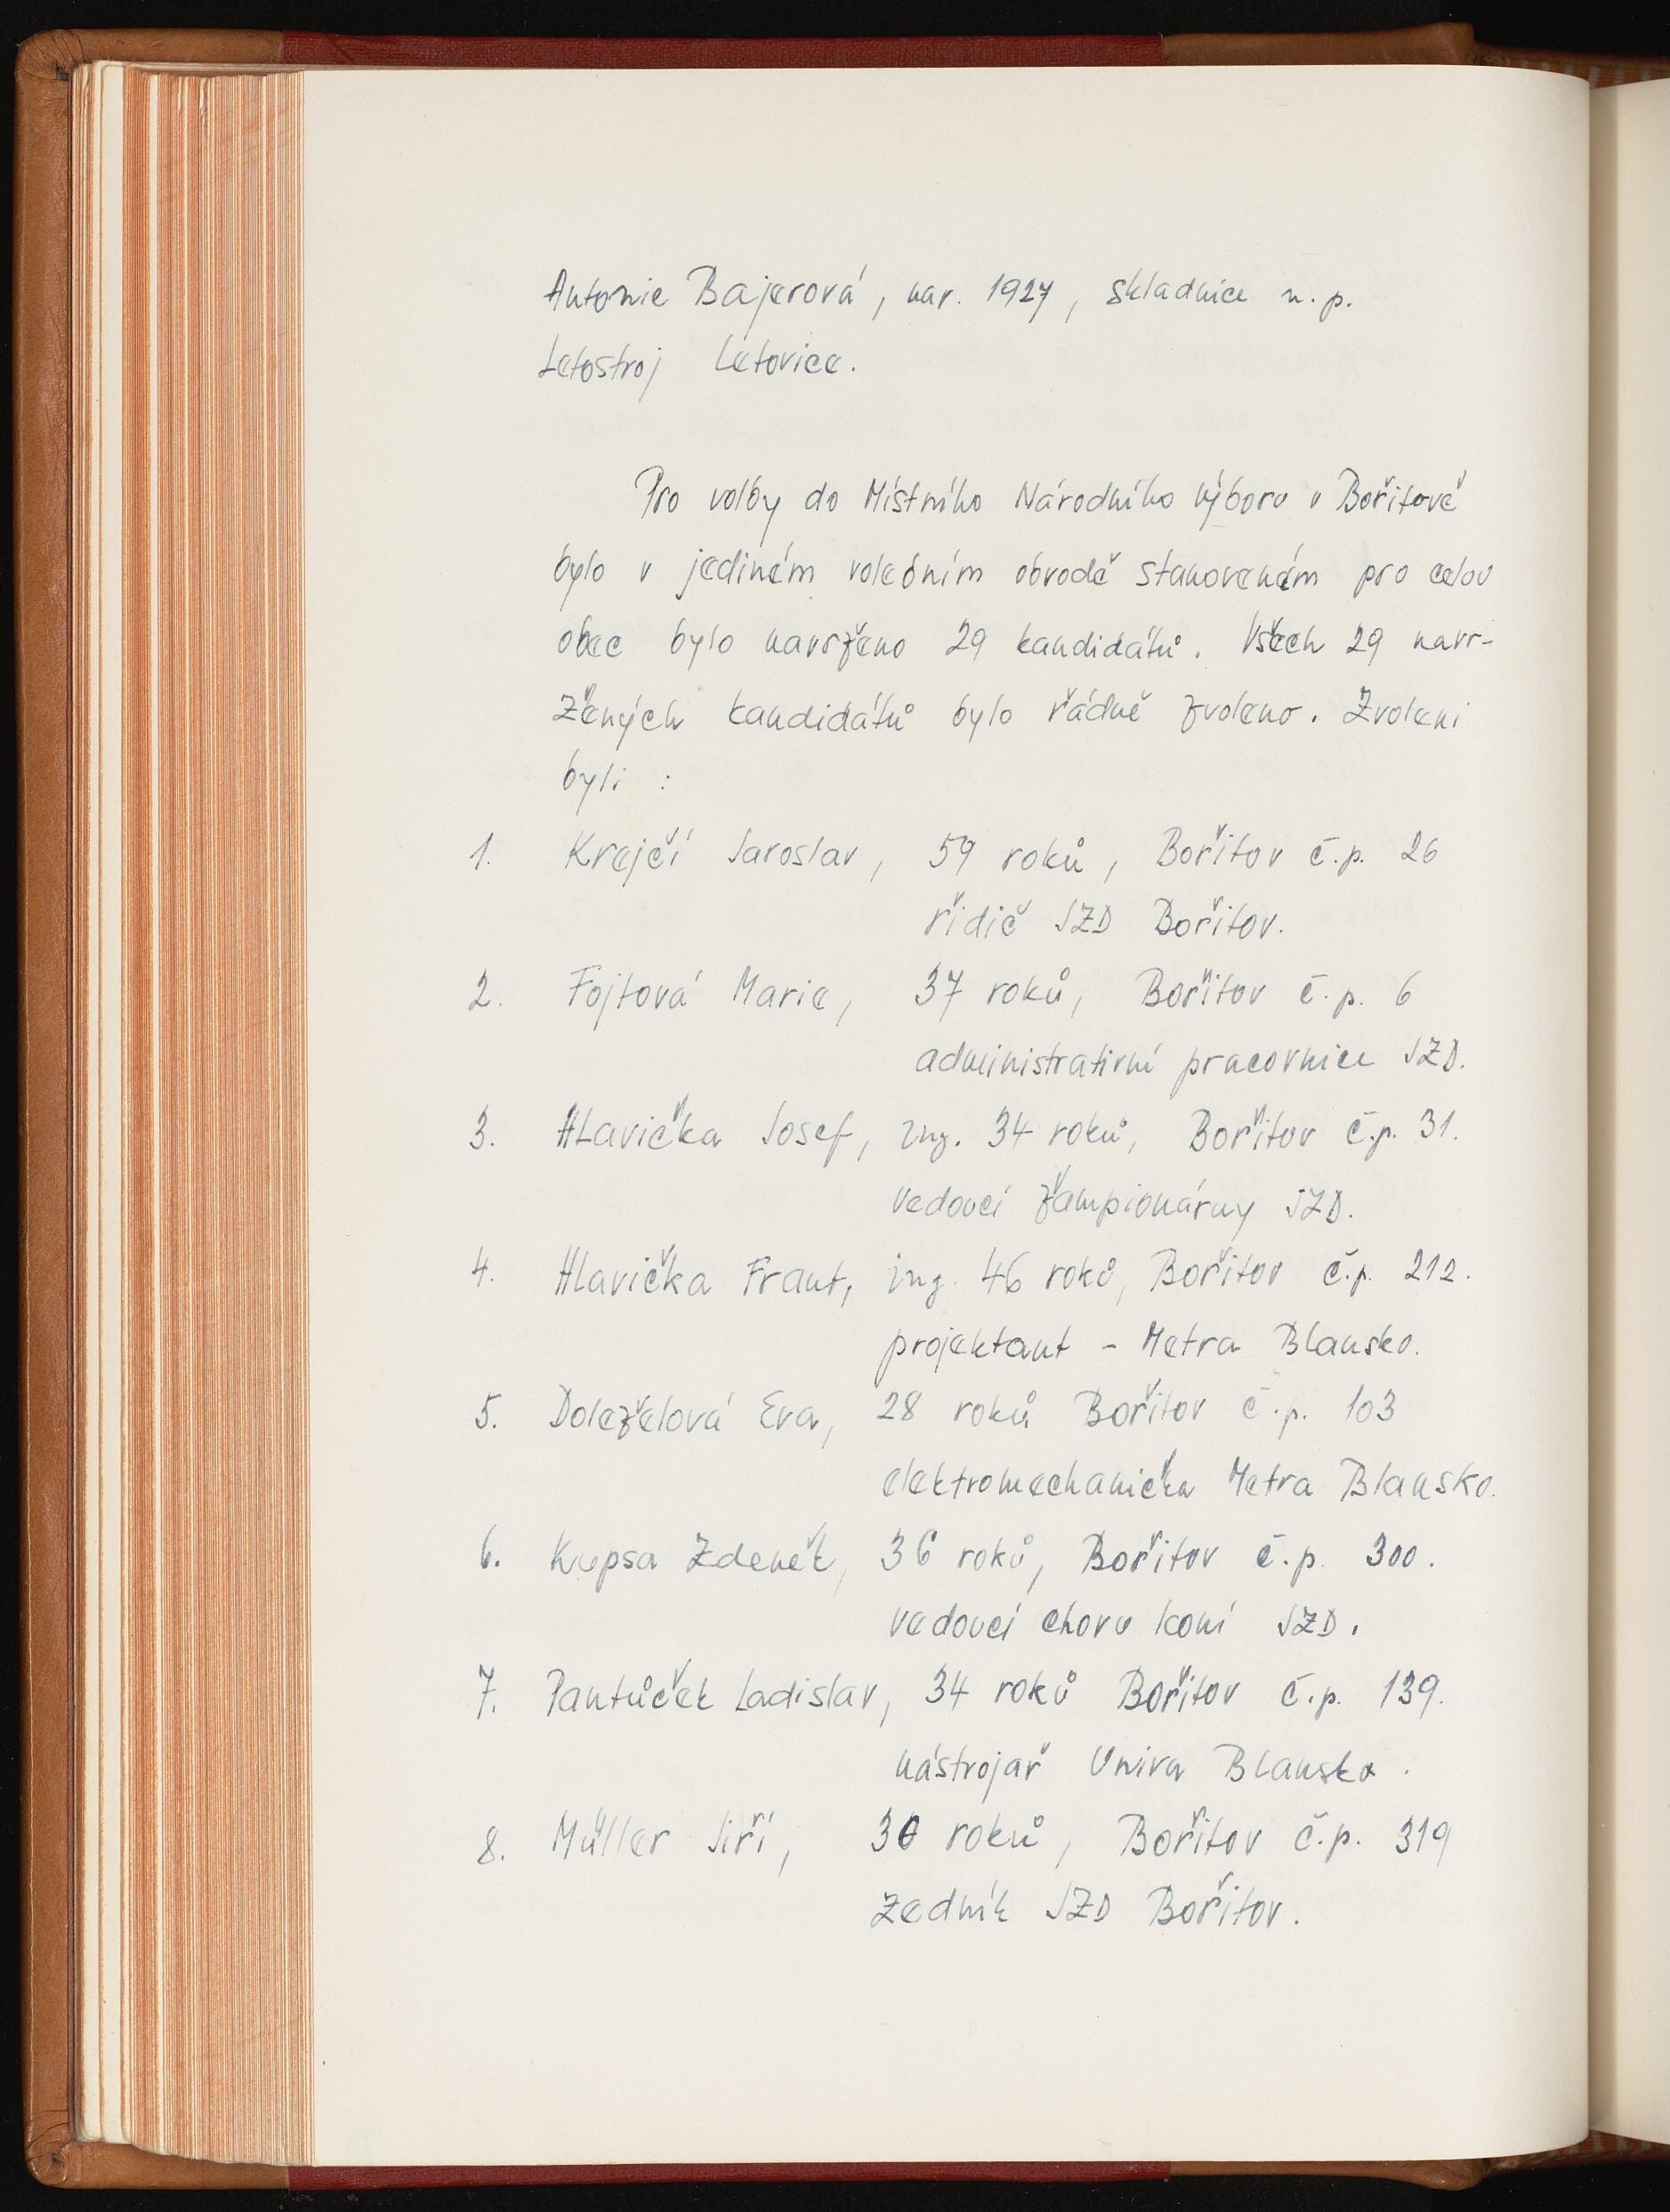 Antonie Bajerová, nar. 1927, skladnice n. p.
Letostroj Letovice.
Pro volby do Místního Národního výboru v Bořitově
bylo v jediném volebním obvodě stanoveném pro celou
obec bylo navrženo 29 kandidátů. Všech 29 navr-
žených kandidátů bylo řádně zvoleno. Zvoleni
byli :
1. Krejčí Jaroslav, 59 roků, Bořitov č.p. 26
řidič JZD Bořitov.
2. Fojtová Marie, 37 roků, Bořitov č.p. 6
administrativní pracovnice JZD.
3. Hlavička Josef, ing. 34 roků, Bořitov č.p. 31.
vedoucí žampionárny JZD.
4. Hlavička Frant, ing. 46 roků, Bořitov č.p. 212.
projektant - Metra Blansko.
5. Doleželová Eva, 28 roků Bořitov č.p. 103
elektromechanička Metra Blansko.
6. Kupsa Zdeněk, 36 roků, Bořitov č.p. 300.
vedoucí chovu koní JZD.
7. Pantůček Ladislav, 34 roků Bořitov č.p. 139.
nástrojař Univa Blansko.
8. Müller Jiří, 30 roků, Bořitov č.p. 319
zedník JZD Bořitov.